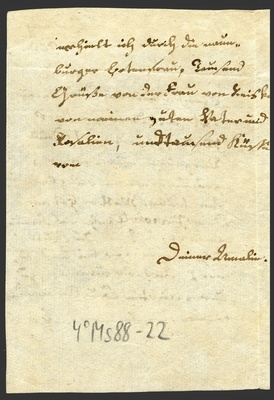 erhielt ich durch die naum-
burger Botenfrau, Tausend
Grüße von der Frau von
von meinen guten Vater und
Rosalien, und tausend Küsse
von
Deiner Amalie.
4° Ms 88-22